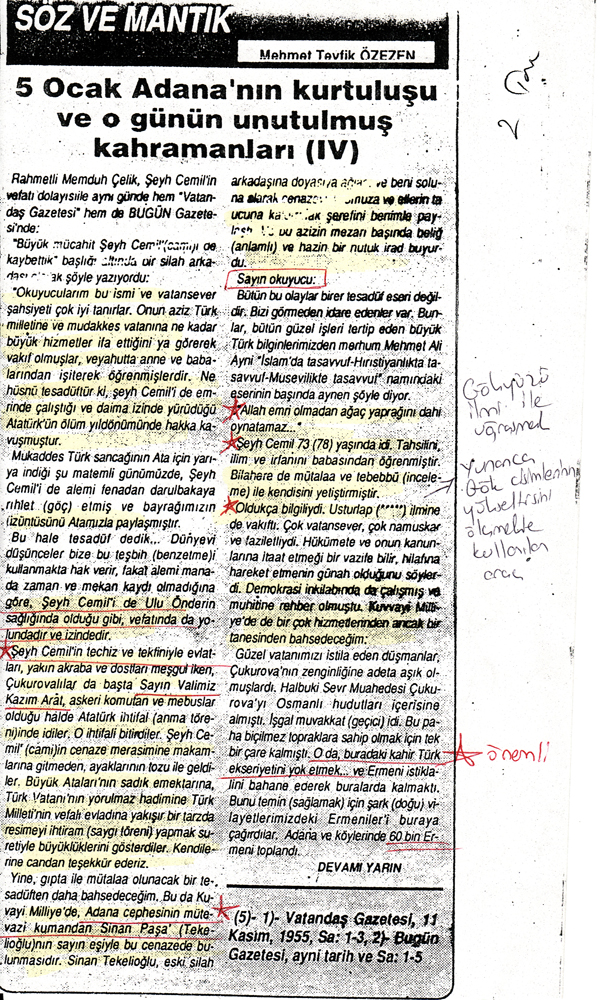 SÖZ VE MANTIK
Mehmet Tevfik ÖZEZEN
5 Ocak Adana'nın kurtuluşu
ve o günün unutulmuş
kahramanları (IV)
Rahmetli Memduh Çelik, Şeyh Cemil'in
vefatı dolayısiile aynı günde hem "Vatan-
daş Gazetesi" hem de BUGÜN Gazete-
si'nde:
"Büyük mücahit Şeyh Cemil'i de
kaybettik" başlığı altında bir silah arka-
daşı şöyle yazıyordu:
"Okuyucularım bu ismi ve vatansever
şahsiyeti çok iyi tanırlar. Onun aziz Türk
milletine ve mudakkes vatanına ne kadar
büyük hizmetler ifa ettiğini ya görerek
vakıf olmuşlar, veyahutta anne ve baba-
larından işiterek öğrenmişlerdir. Ne
hüsnü tesadüftür ki, şeyh Cemil'i de em-
rinde çalıştığı ve daima izinde yürüdüğü
Atatürk'ün ölüm yıldönümünde hakka ka-
vuşmuştur.
Mukaddes Türk sancağının Ata için yarı-
ya indiği şu matemli günümüzde, Şeyh
Cemil'i de alemi fenadan darulbakaya
rıhlet (göç) etmiş ve bayrağımızın
üzüntüsünü Atamızla paylaşmıştır.
Bu hale tesadüf dedik... Dünyevi
düşünceler bize bu teşbih (benzetme)i
kullanmakta hak verir, fakat âlemi mana-
da zaman ve mekan kaydı olmadığına
göre, Şeyh Cemil'i de Ulu Önderin
sağlığında olduğu gibi, vefatında da yo-
lundadır ve izindedir.
Şeyh Cemil'in techiz ve tekfiniyle evlat-
ları, yakın akraba ve dostları meşgul iken,
Çukurovalılar da başta Sayın Valimiz
Kazım Arât, askeri komutan ve mebuslar
olduğu halde Atatürk ihtifal (anma töre-
ni)inde idiler. O ihtifali bitirdiler. Şeyh Ce-
mil' (cami)in cenaze merasimine makam-
larına gitmeden, ayaklarının tozu ile geldi-
ler. Büyük Ataları'nın sadık emektarına,
Türk Vatanı'nın yorulmaz hadimine Türk
Milleti'nin vefalı evladına yakışır bir tarzda
resimeyi ihtiram (saygı töreni) yapmak su-
retiyle büyüklüklerini gösterdiler. Kendile-
rine candan teşekkür ederiz.
Yine, gıpta ile mütalaa olunacak bir te-
sadüften daha bahsedeceğim. Bu da Ku-
vayi Milliye'de, Adana cephesinin müte-
vazi kumandan Sinan Paşa' (Teke-
lioğlu)nun sayın eşiyle bu cenazede bu-
lunmasıdır. Sinan Tekelioğlu, eski silah
arkadaşına doyasıya ve beni solu-
na alarak ve ellerin ta
ucuna şerefini benimle pay-
bu azizin mezarı başında beliğ
(anlamlı) ve hazin bir nutuk irad buyur-
du.
Sayın okuyucu:
Bütün bu olaylar birer tesadüf eseri değil-
dir. Bizi görmeden idare edenler var. Bun-
lar, bütün güzel işleri tertip eden büyük
Türk bilginlerimizden merhum Mehmet Ali
Ayni "İslam'da tasavvuf-Hıristiyanlıkta ta-
savvuf-Musevilikte tasavvuf" namındaki
eserinin başında aynen şöyle diyor.
"Allah emri olmadan ağaç yaprağını dahi
oynatamaz..."
Şeyh Cemil 73 (78) yaşında idi. Tahsilini,
ilim ve irfanını babasından öğrenmiştir.
Bilahere de mütalaa ve tebebbü (incele-
me) ile kendisini yetiştirmiştir.
Oldukça bilgiliydi. Usturlap (*****) ilmine
de vakıftı. Çok vatansever, çok namuskar
ve faziletliydi. Hükümete ve onun kanun-
larına itaat etmeği bir vazife bilir, hilafına
hareket etmenin günah olduğunu söyler-
di. Demokrasi inkılabında da çalışmış ve
muhitine rehber olmuştu. Kuvvayi Milli-
ye'de de bir çok hizmetlerinden ancak bir
tanesinden bahsedeceğim:
Güzel vatanımızı istila eden düşmanlar,
Çukurova'nın zenginliğine adeta aşık ol-
muşlardı. Halbuki Sevr Muahedesi Çuku-
rova'yı Osmanlı hudutları içerisine
almıştı. İşgal muvakkat (geçici) idi. Bu pa-
ha biçilmez topraklara sahip olmak için tek
bir çare kalmıştı. O da, buradaki kahir Türk
ekseriyetini yok etmek... ve Ermeni istikla-
lini bahane ederek buralarda kalmaktı.
Bunu temin (sağlamak) için şark (doğu) vi-
layetlerimizdeki Ermeniler'i buraya
çağırdılar. Adana ve köylerinde 60 bin Er-
meni toplandı.
DEVAMI YARIN
(5)- 1)- Vatandaş Gazetesi, 11
Kasım, 1955, Sa: 1-3, 2)- Bugün
Gazetesi, ayni tarih ve Sa: 1-5
2
Gökyüzü
ilmi ile
uğraşmak
Yunanca
Gök cisimlerinin
yükseltisini
ölçmekte
kullanılan
araç
önemli